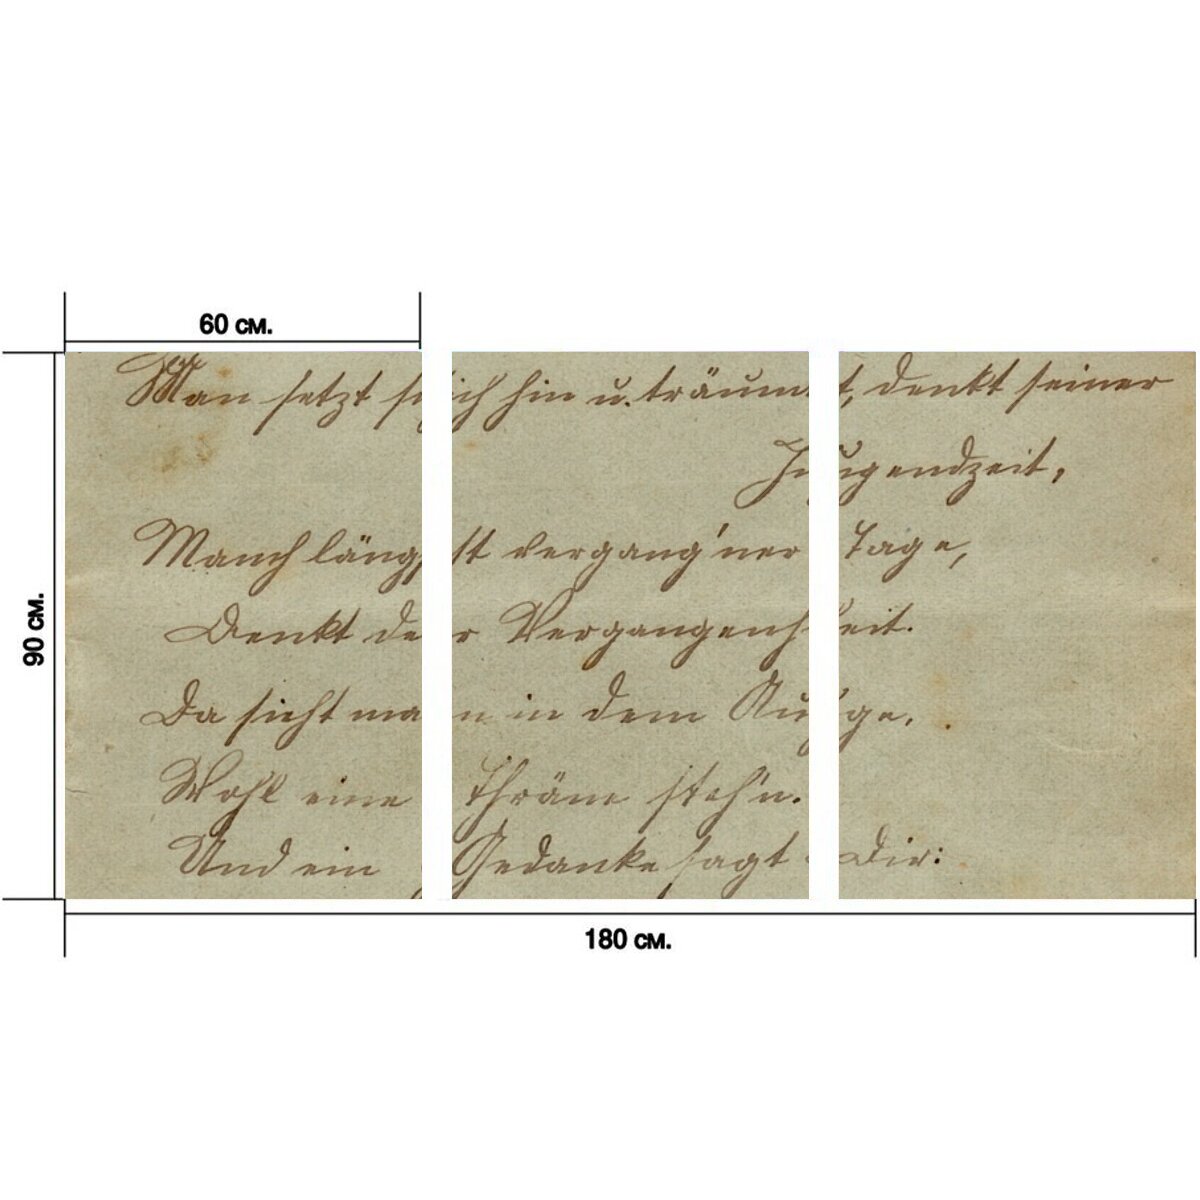 60 см.
Man setzt sich hin u. träumt, denkt seiner
Jugendzeit,
Manch längst vergang'ner Tage,
Denkt der Vergangenheit.
Da sieht man in dem Auge,
Wohl eine Thräne steh'n.
Und ein Gedanke sagt Dir:
90 см.
180 см.